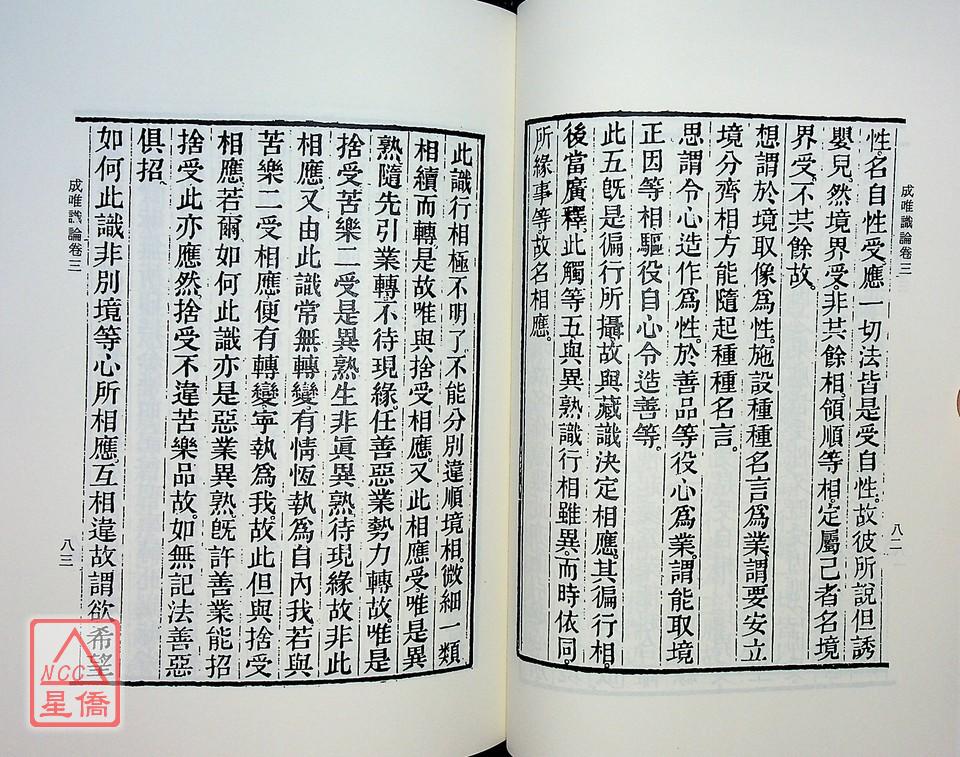 成唯識論卷三
八二
性名自性受應一切法皆是受自性。故彼所說但誘
嬰兒。然境界受。非共餘相。領順等相。定屬己者名境
界受。不共餘故。
想謂於境取像為性。施設種種名言為業。謂要安立
境分齊相。方能隨起種種名言。
思謂令心造作為性。於善品等役心為業。謂能取境
正因等相。驅役自心令造善等。
此五旣是徧行所攝。故與藏識決定相應。其徧行相。
後當廣釋。此觸等五與異熟識行相雖異。而時依同。
所緣事等。故名相應。
此識行相極不明了。不能分別違順境相。微細一類
相續而轉。是故唯與捨受相應。又此相應受。唯是異
熟。隨先引業轉。不待現緣。任善惡業勢力轉故。唯是
捨受。苦樂二受是異熟生。非眞異熟。待現緣故。非此
相應。又由此識常無轉變。有情恆執為自內我。若與
苦樂二受相應。便有轉變。寧執為我。故此但與捨受
相應。若爾如何此識亦是惡業異熟。旣許善業能招
捨受。此亦應然。捨受不違苦樂品故。如無記法善惡
俱招。
如何此識非別境等心所相應。互相違故。謂欲希望
成唯識論卷三
八三
NCC
星僑